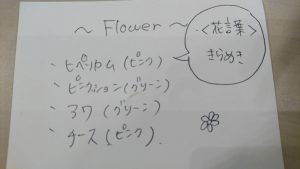 ～ Flower ～
・ヒペリカム（ピンク）
・ピンクッション（グリーン）
・アワ（グリーン）
・ナース（ピンク）
<花言葉>
きらめき